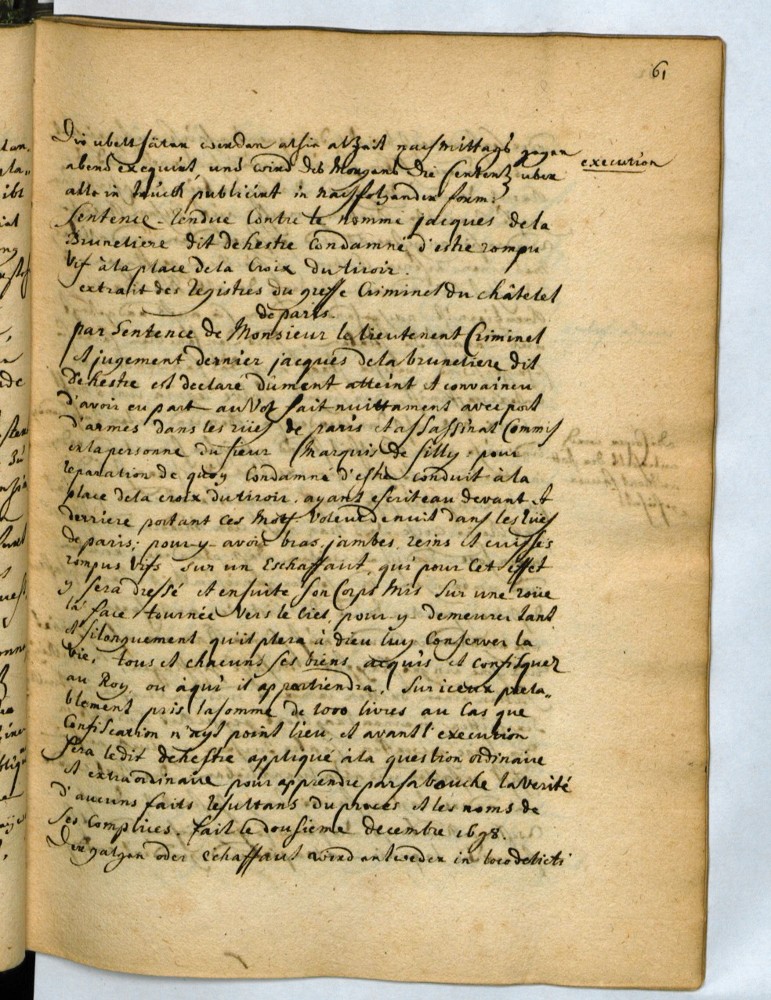 61
Die übelthäter werden alhie alzeit nachmittags gegen
execution
abend exequirt, und wird des Morgens die Sentenz über
all in truck publicirt in nachfolgender form:
Sentence rendue Contre le nomme jacques dela
Brunetiere dit dehestre Condamné d'estre rompu
Vif à la place dela Croix du tiroir.
extrait des Registres du greffe Criminel du châtelet
de paris.
par Sentence de Monsieur le lieutenent Criminel
et jugement dernier jacques dela brunetiere dit
dehestre est declaré dument atteint et convaincu
d'avoir eu part au Vol fait nuittament avec port
d'armes dans les rües de paris et assassinat Commis
en la personne du sieur Marquis de Silly; pour
reparation de quoy Condamné d'estre conduit à la
place dela croix du tiroir, ayant escriteau devant et
derriere portant ces Mots Voleur de nuit dans les rües
de paris; pour y avoir bras jambes, reins et cuisses
rompus Vifs sur un Eschaffaut, qui pour Cet effet
y sera dressé et ensuite son Corps Mis sur une roüe
la face tournée Vers le Ciel, pour y demeurer tant
et si longuement qu'il plera à dieu luy Conserver la
Vie, tous et chacuns ses biens acquis et confisquez
au Roy, ou à qui il appartiendra, sur iceux preala-
blement pris la somme de 1000 livres au Cas que
Confiscation n'ayt point lieu, et avant l'execution
sera ledit dehestre appliqué à la question ordinaire
et extraordinaire pour apprendre par sa bouche la Verité
d'aucuns faits resultans du proces et les noms de
ses Complices. fait le dousieme decembre 1698.
Der galgen oder Echaffaut wird entweder in loco delicti